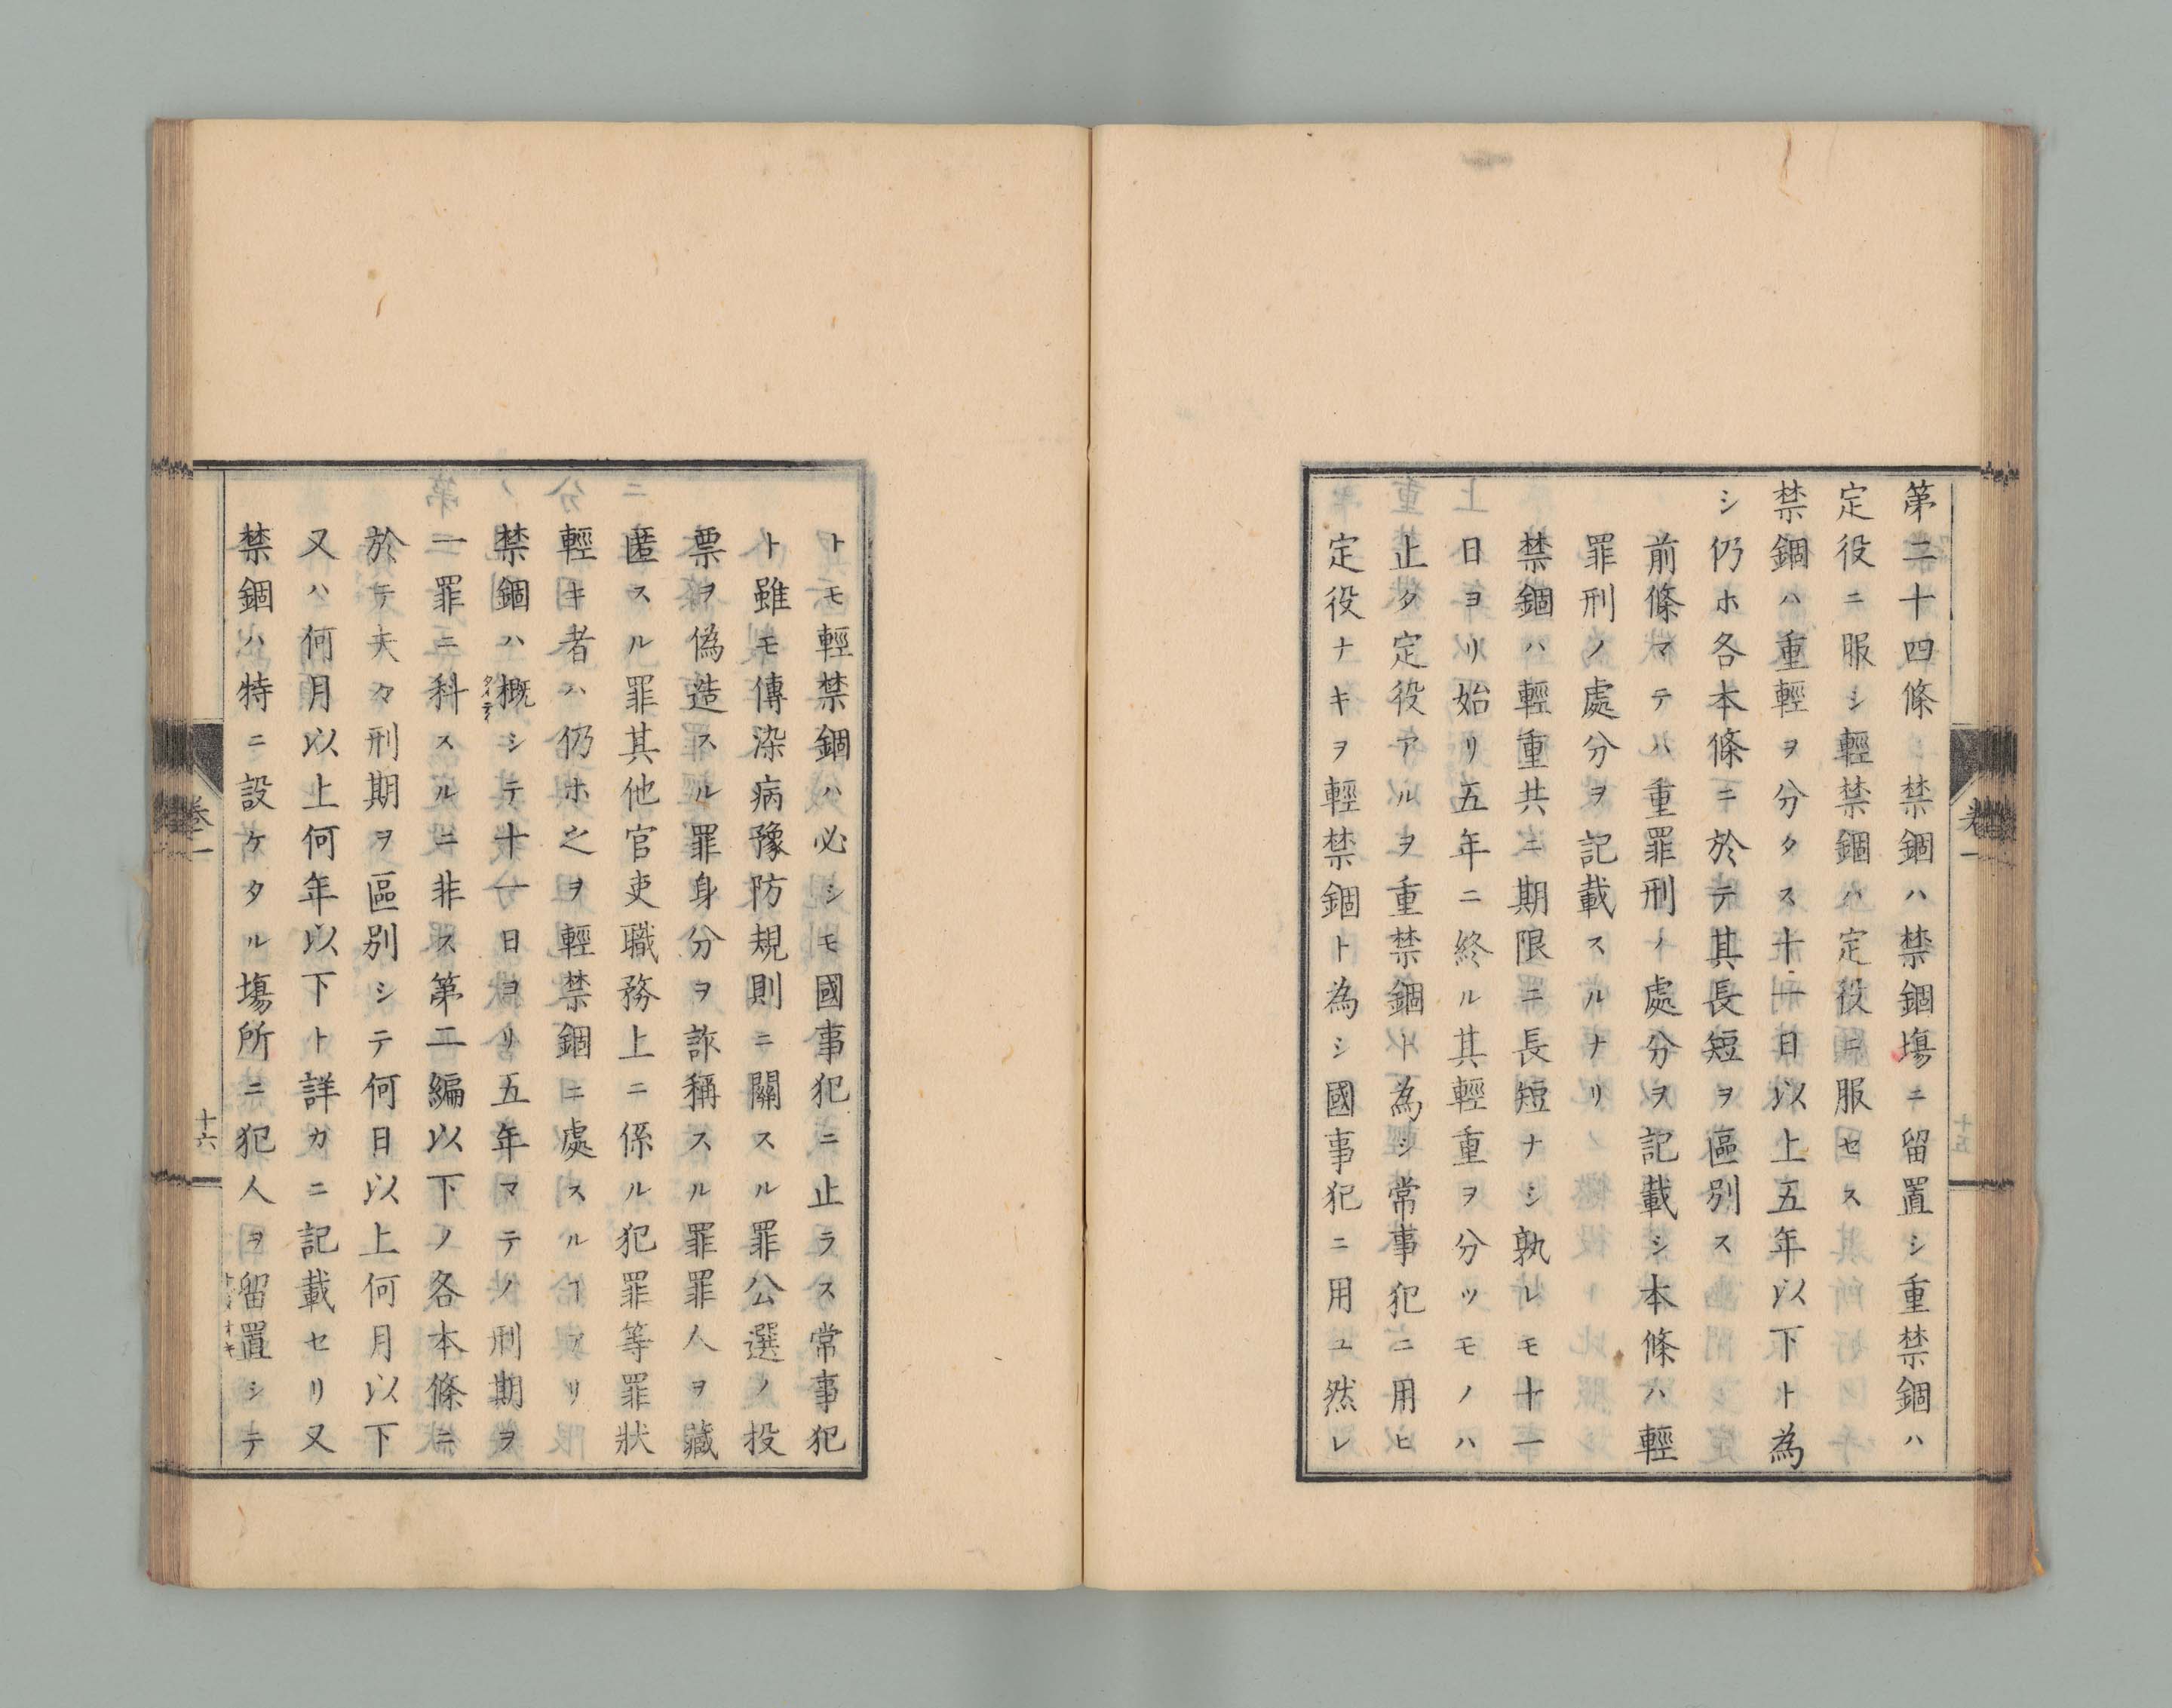 第二十四條 禁錮ハ禁錮塲ニ留置シ重禁錮ハ
定役ニ服シ輕禁錮ハ定役ニ服セス
禁錮ハ重輕ヲ分タス十一日以上五年以下ト為
シ仍ホ各本條ニ於テ其長短ヲ區別ス
前條マテハ重罪刑ノ處分ヲ記載シ本條ハ輕
罪刑ノ處分ヲ記載スルナリ
禁錮ハ輕重共ニ期限ニ長短ナシ孰レモ十一
日ヨリ始リ五年ニ終ル其輕重ヲ分ツモノハ
止タ定役アルヲ重禁錮ト為シ常事犯ニ用ヒ
定役ナキヲ輕禁錮ト為シ國事犯ニ用ユ然レ
卷一
十五
トモ輕禁錮ハ必シモ國事犯ニ止ラス常事犯
ト雖モ傳染病豫防規則ニ關スル罪公選ノ投
票ヲ偽造スル罪身分ヲ詐稱スル罪罪人ヲ藏
匿スル罪其他官吏職務上ニ係ル犯罪等罪狀
輕キ者ハ仍ホ之ヲ輕禁錮ニ處スルヿアリ
禁錮ハ概シテ十一日ヨリ五年マテノ刑期ヲ
タイテイ
一罪ニ科スルニ非ス第二編以下ノ各本條ニ
於テ夫々刑期ヲ區別シテ何日以上何月以下
又ハ何月以上何年以下ト詳カニ記載セリ又
禁錮ハ特ニ設ケタル塲所ニ犯人ヲ留置シテ
卷一
十六